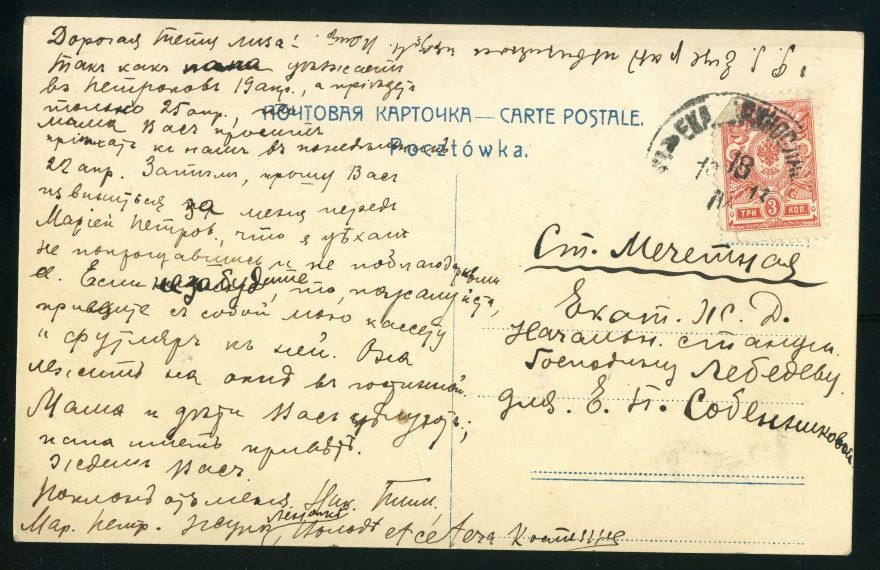 Дорогая тетя Лиза!
Такъ какъ папа уѣзжаетъ
въ Петроковъ 19 апр., а пріѣдетъ
только 25 апр., то
мама Васъ проситъ
пріѣхать къ намъ въ понедѣльникъ
22 апр. Затѣмъ, прошу Васъ
извиниться за меня передъ
Маріей Петров., что я уѣхалъ
не попрощавшись и не поблагодаривши
ее. Если не забудете, то, пожалуйста,
привезите съ собой мою кассету
и футляръ къ ней. Она
лежитъ на окнѣ въ гостинной.
Мама и дѣти Васъ цѣлуютъ;
папа шлетъ привѣтъ.
Ждемъ Васъ.
Поклонъ отъ меня Ник. Тим.,
Мар. Петр. Володѣ etcetera
P. S. Еще разъ
ПОЧТОВАЯ КАРТОЧКА — CARTE POSTALE.
Pocztówka.
18
ТРИ 3 КОП.
Ст. Мечетная
Екат. Ж. Д.
Начальн. станціи
Господину Лебедеву
для Е. П. Собенниковой